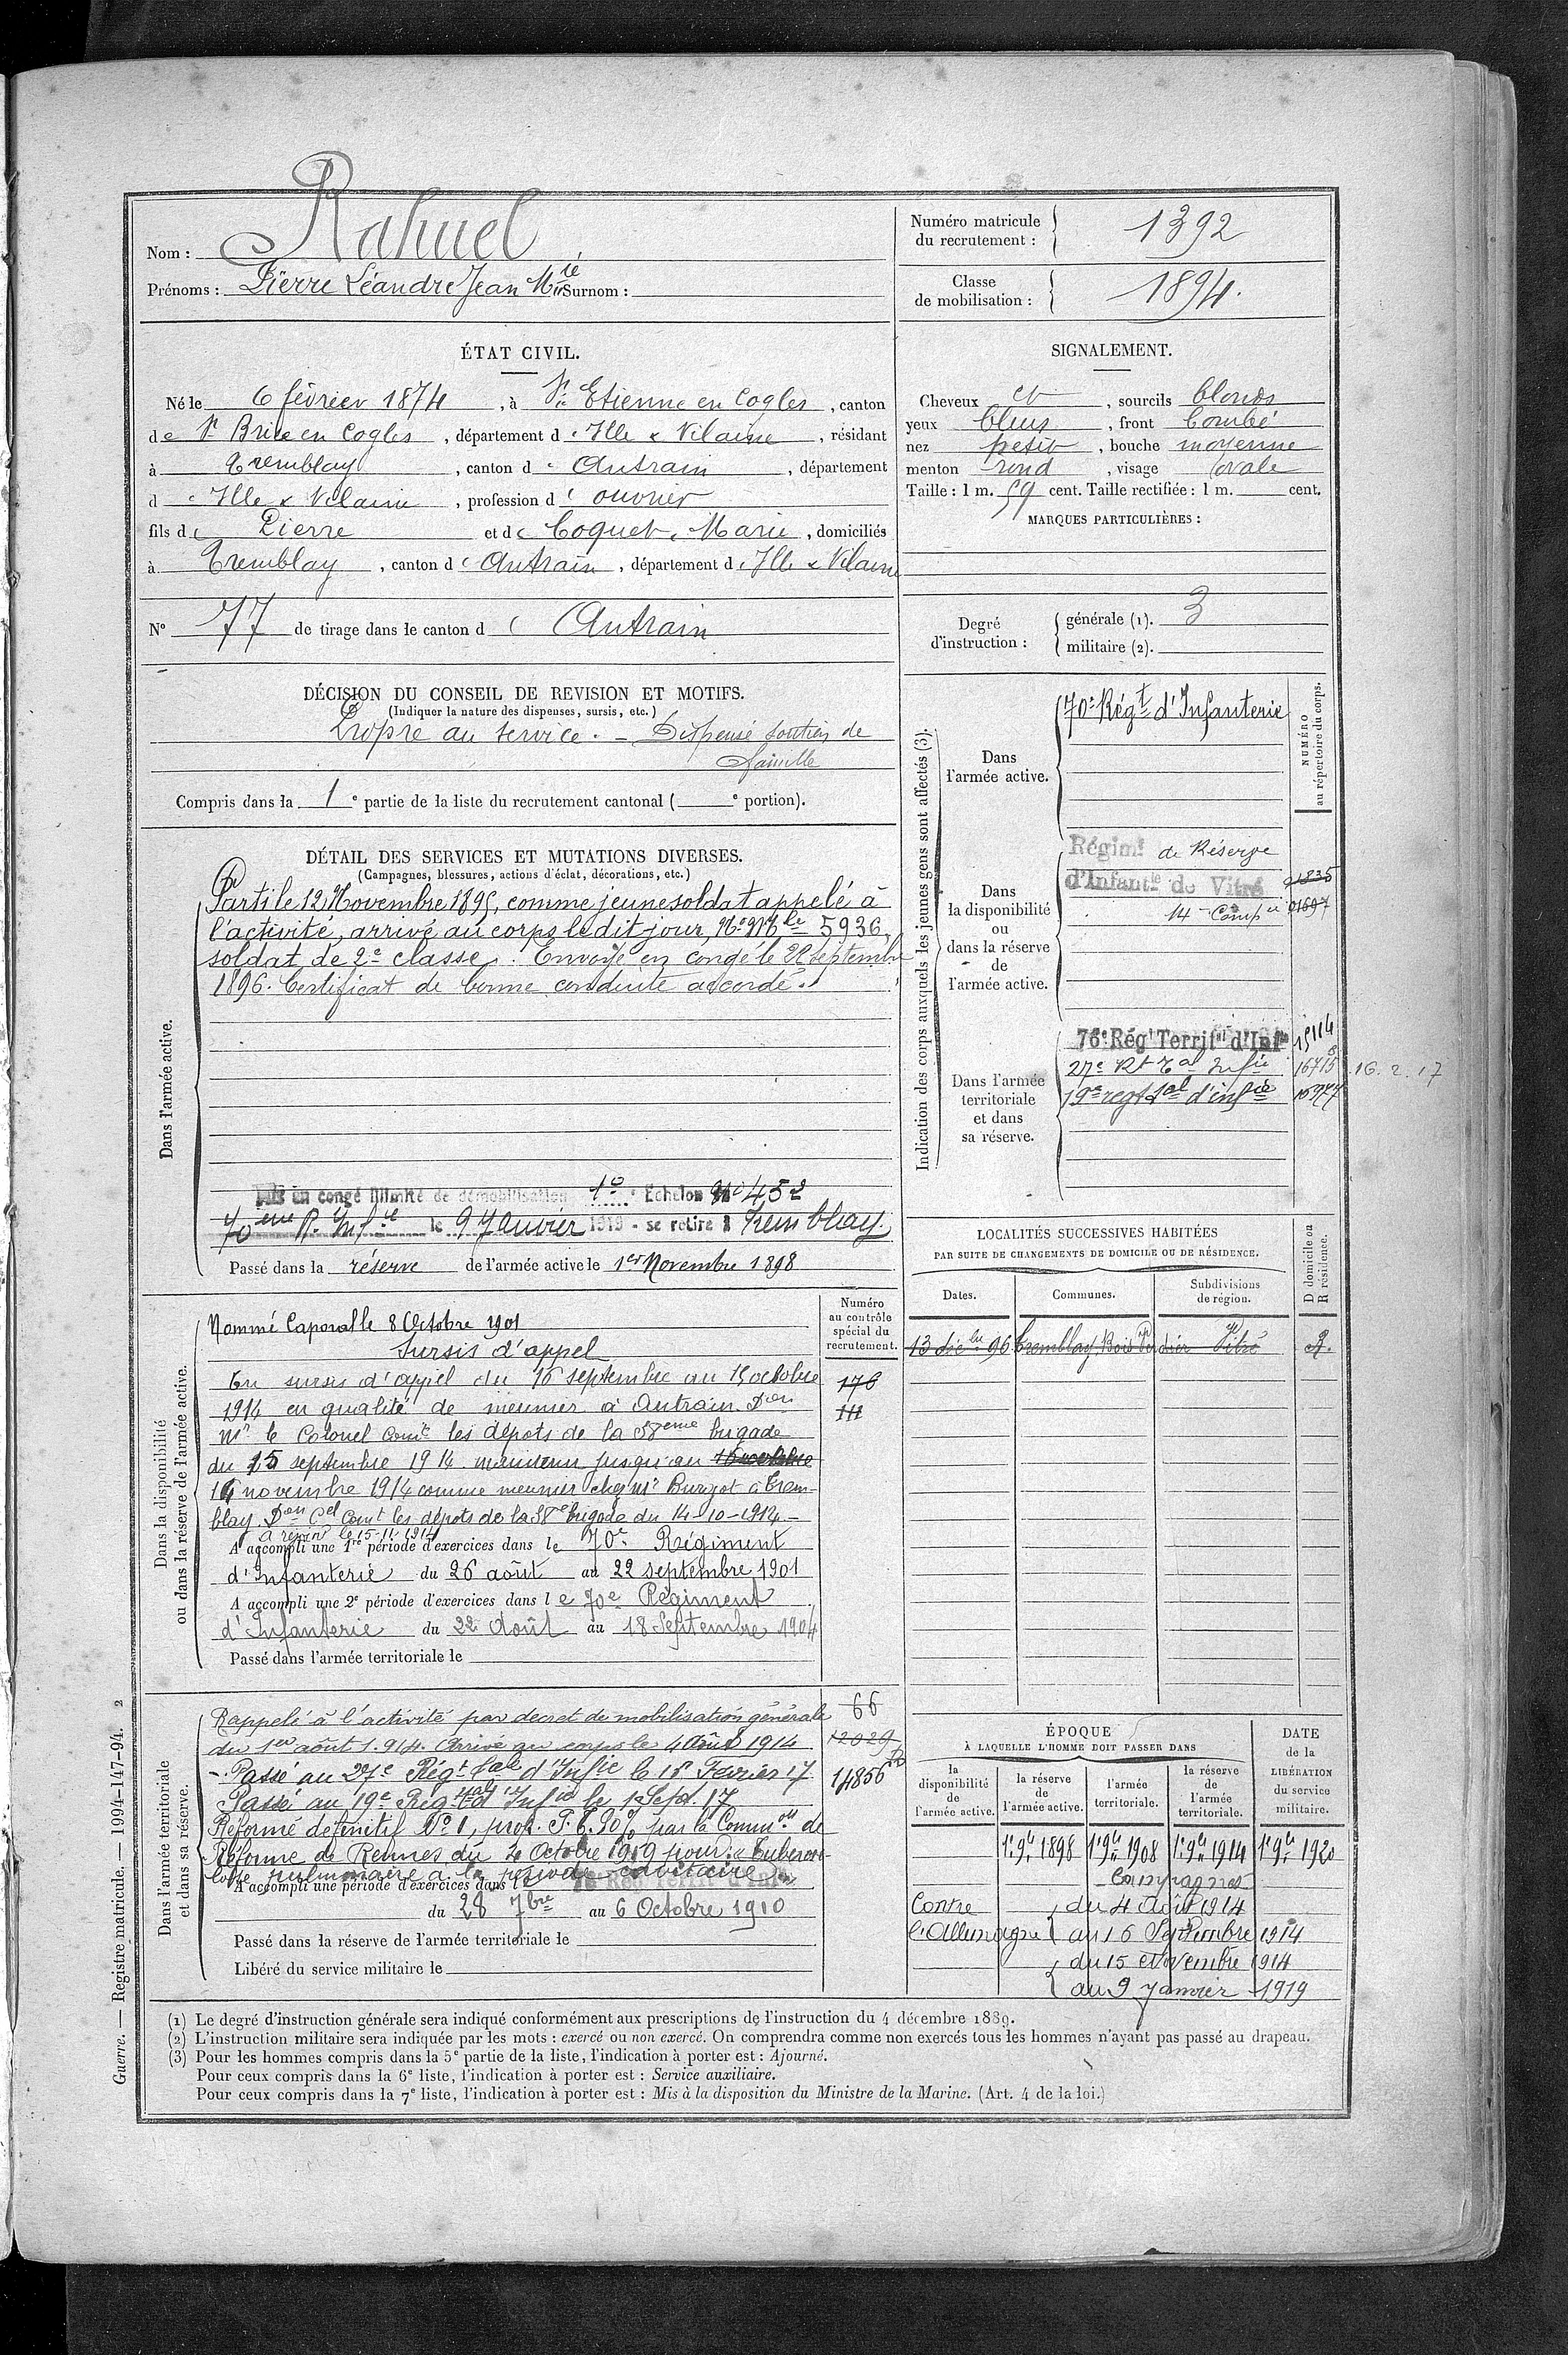 Nom : Rahuel
Prénoms : Pierre Léandre Jean Mie Surnom :
Numéro matricule
du recrutement : 1392
Classe
de mobilisation : 1894.
ÉTAT CIVIL.
Né le 6 février 1874, à St Etienne en Cogles, canton
de St Brice en Cogles, département d'Ille & Vilaine, résidant
à Tremblay, canton d' Antrain, département
d'Ille & Vilaine, profession d' ouvrier
fils de Pierre et de Coquet, Marie, domiciliés
à Tremblay, canton d'Antrain, département d'Ille & Vilaine
N° 77 de tirage dans le canton d' Antrain
SIGNALEMENT.
Cheveux et, sourcils blonds
yeux bleus, front bombé
nez petit, bouche moyenne
menton rond, visage ovale
Taille : 1 m. 59 cent. Taille rectifiée : 1 m. cent.
MARQUES PARTICULIÈRES :
Degré
d'instruction :
générale (1). 3
militaire (2).
DÉCISION DU CONSEIL DE REVISION ET MOTIFS.
(Indiquer la nature des dispenses, sursis, etc.)
Propre au service. – Dispensé soutien de
famille
Compris dans la 1e partie de la liste du recrutement cantonal ( e portion).
DÉTAIL DES SERVICES ET MUTATIONS DIVERSES.
(Campagnes, blessures, actions d'éclat, décorations, etc.)
Dans l'armée active.
Parti le 12 Novembre 1895, comme jeune soldat appelé à
l'activité, arrivé au corps le dit jour, No Mle 5936,
soldat de 2e classe. Envoyé en congé le septembre
1896. Certificat de bonne conduite accordé.
Mis en congé illimité de démobilisation 1o Echelon No 452
70eme R. Infie le 9 Janvier 1919 - se retire à Tremblay
Passé dans la réserve de l'armée active le 1er Novembre 1898
Indication des corps auxquels les jeunes gens sont affectés (3).
NUMÉRO
au répertoire du corps.
Dans
l'armée active.
70e Régt d'Infanterie
Dans
la disponibilité
ou
dans la réserve
de
l'armée active.
Régimt de Réserve
d'Infantie de Vitré 21835
14e Compie 01697
Dans l'armée
territoriale
et dans
sa réserve.
76e Régt Territal d'Infie 15114
27e Rt Tal Infie 16715 16.2.17
19e regt Tal d'infie
LOCALITÉS SUCCESSIVES HABITÉES
PAR SUITE DE CHANGEMENTS DE DOMICILE OU DE RÉSIDENCE.
D domicile ou
R résidence.
Dates. Communes. Subdivisions
de région.
13 dée bre 96 Tremblay, Vitré R.
Dans la disponibilité
ou dans la réserve de l'armée active.
Numéro
au contrôle
spécial du
recrutement.
176
111
Nommé Caporal le 8 Octobre 1901
Sursis d'appel
En sursis d'appel du 16 septembre au 15 octobre
1914 en qualité de meunier à Antrain. Don
Mr le Colonel comt les dépots de la 38eme brigade
du 15 septembre 1914. maintenu jusqu'au
14 novembre 1914 comme meunier chez Mr Burgot à Trem-
blay Don Cel Comt les dépots de la 38e brigade du 14-10-1914 -
A rejoint le 15-11-1914
A accompli une 1re période d'exercices dans le 70e Régiment
d'Infanterie du 26 août au 22 septembre 1901
A accompli une 2e période d'exercices dans le 70e Régiment
d'Infanterie du 22 Août au 18 Septembre 1904
Passé dans l'armée territoriale le
Dans l'armée territoriale
et dans sa réserve.
66
12029
14856
Rappelé à l'activité par decret de mobilisation générale
du 1er août 1.914. Arrivé au corps le 4 Août 1914
- Passé au 27e Régt Tal d'Infie le 16 Février 17
Passé au 19e Régt Tal d'Infie le 1 Sept. 17
Réformé définitif No 1, prop. P. T. 30% par la Common de
Réforme de Rennes du 2 Octobre 1919 pour: « Tubercu-
lose pulmonaire à la période cavitaire »
A accompli une période d'exercices dans le 76e Rég Territ d'Infie
du 28 7bre au 6 Octobre 1910
Passé dans la réserve de l'armée territoriale le
Libéré du service militaire le
ÉPOQUE
À LAQUELLE L'HOMME DOIT PASSER DANS
DATE
de la
LIBÉRATION
du service
militaire.
la
disponibilité
de
l'armée active.
la réserve
de
l'armée active.
l'armée
territoriale.
la réserve
de
l'armée
territoriale.
1er 9bre 1898 1er 9bre 1908 1er 9bre 1914 1er 9bre 1920
Campagnes
Contre du 4 Août 1914
l'Allemagne au 16 Septembre 1914
du 15 Novembre 1914
au 9 Janvier 1919
(1) Le degré d'instruction générale sera indiqué conformément aux prescriptions de l'instruction du 4 décembre 1889.
(2) L'instruction militaire sera indiquée par les mots : exercé ou non exercé. On comprendra comme non exercés tous les hommes n'ayant pas passé au drapeau.
(3) Pour les hommes compris dans la 5e partie de la liste, l'indication à porter est : Ajourné.
Pour ceux compris dans la 6e liste, l'indication à porter est : Service auxiliaire.
Pour ceux compris dans la 7e liste, l'indication à porter est : Mis à la disposition du Ministre de la Marine. (Art. 4 de la loi.)
Guerre. — Registre matricule. — 1994-147-94. 2